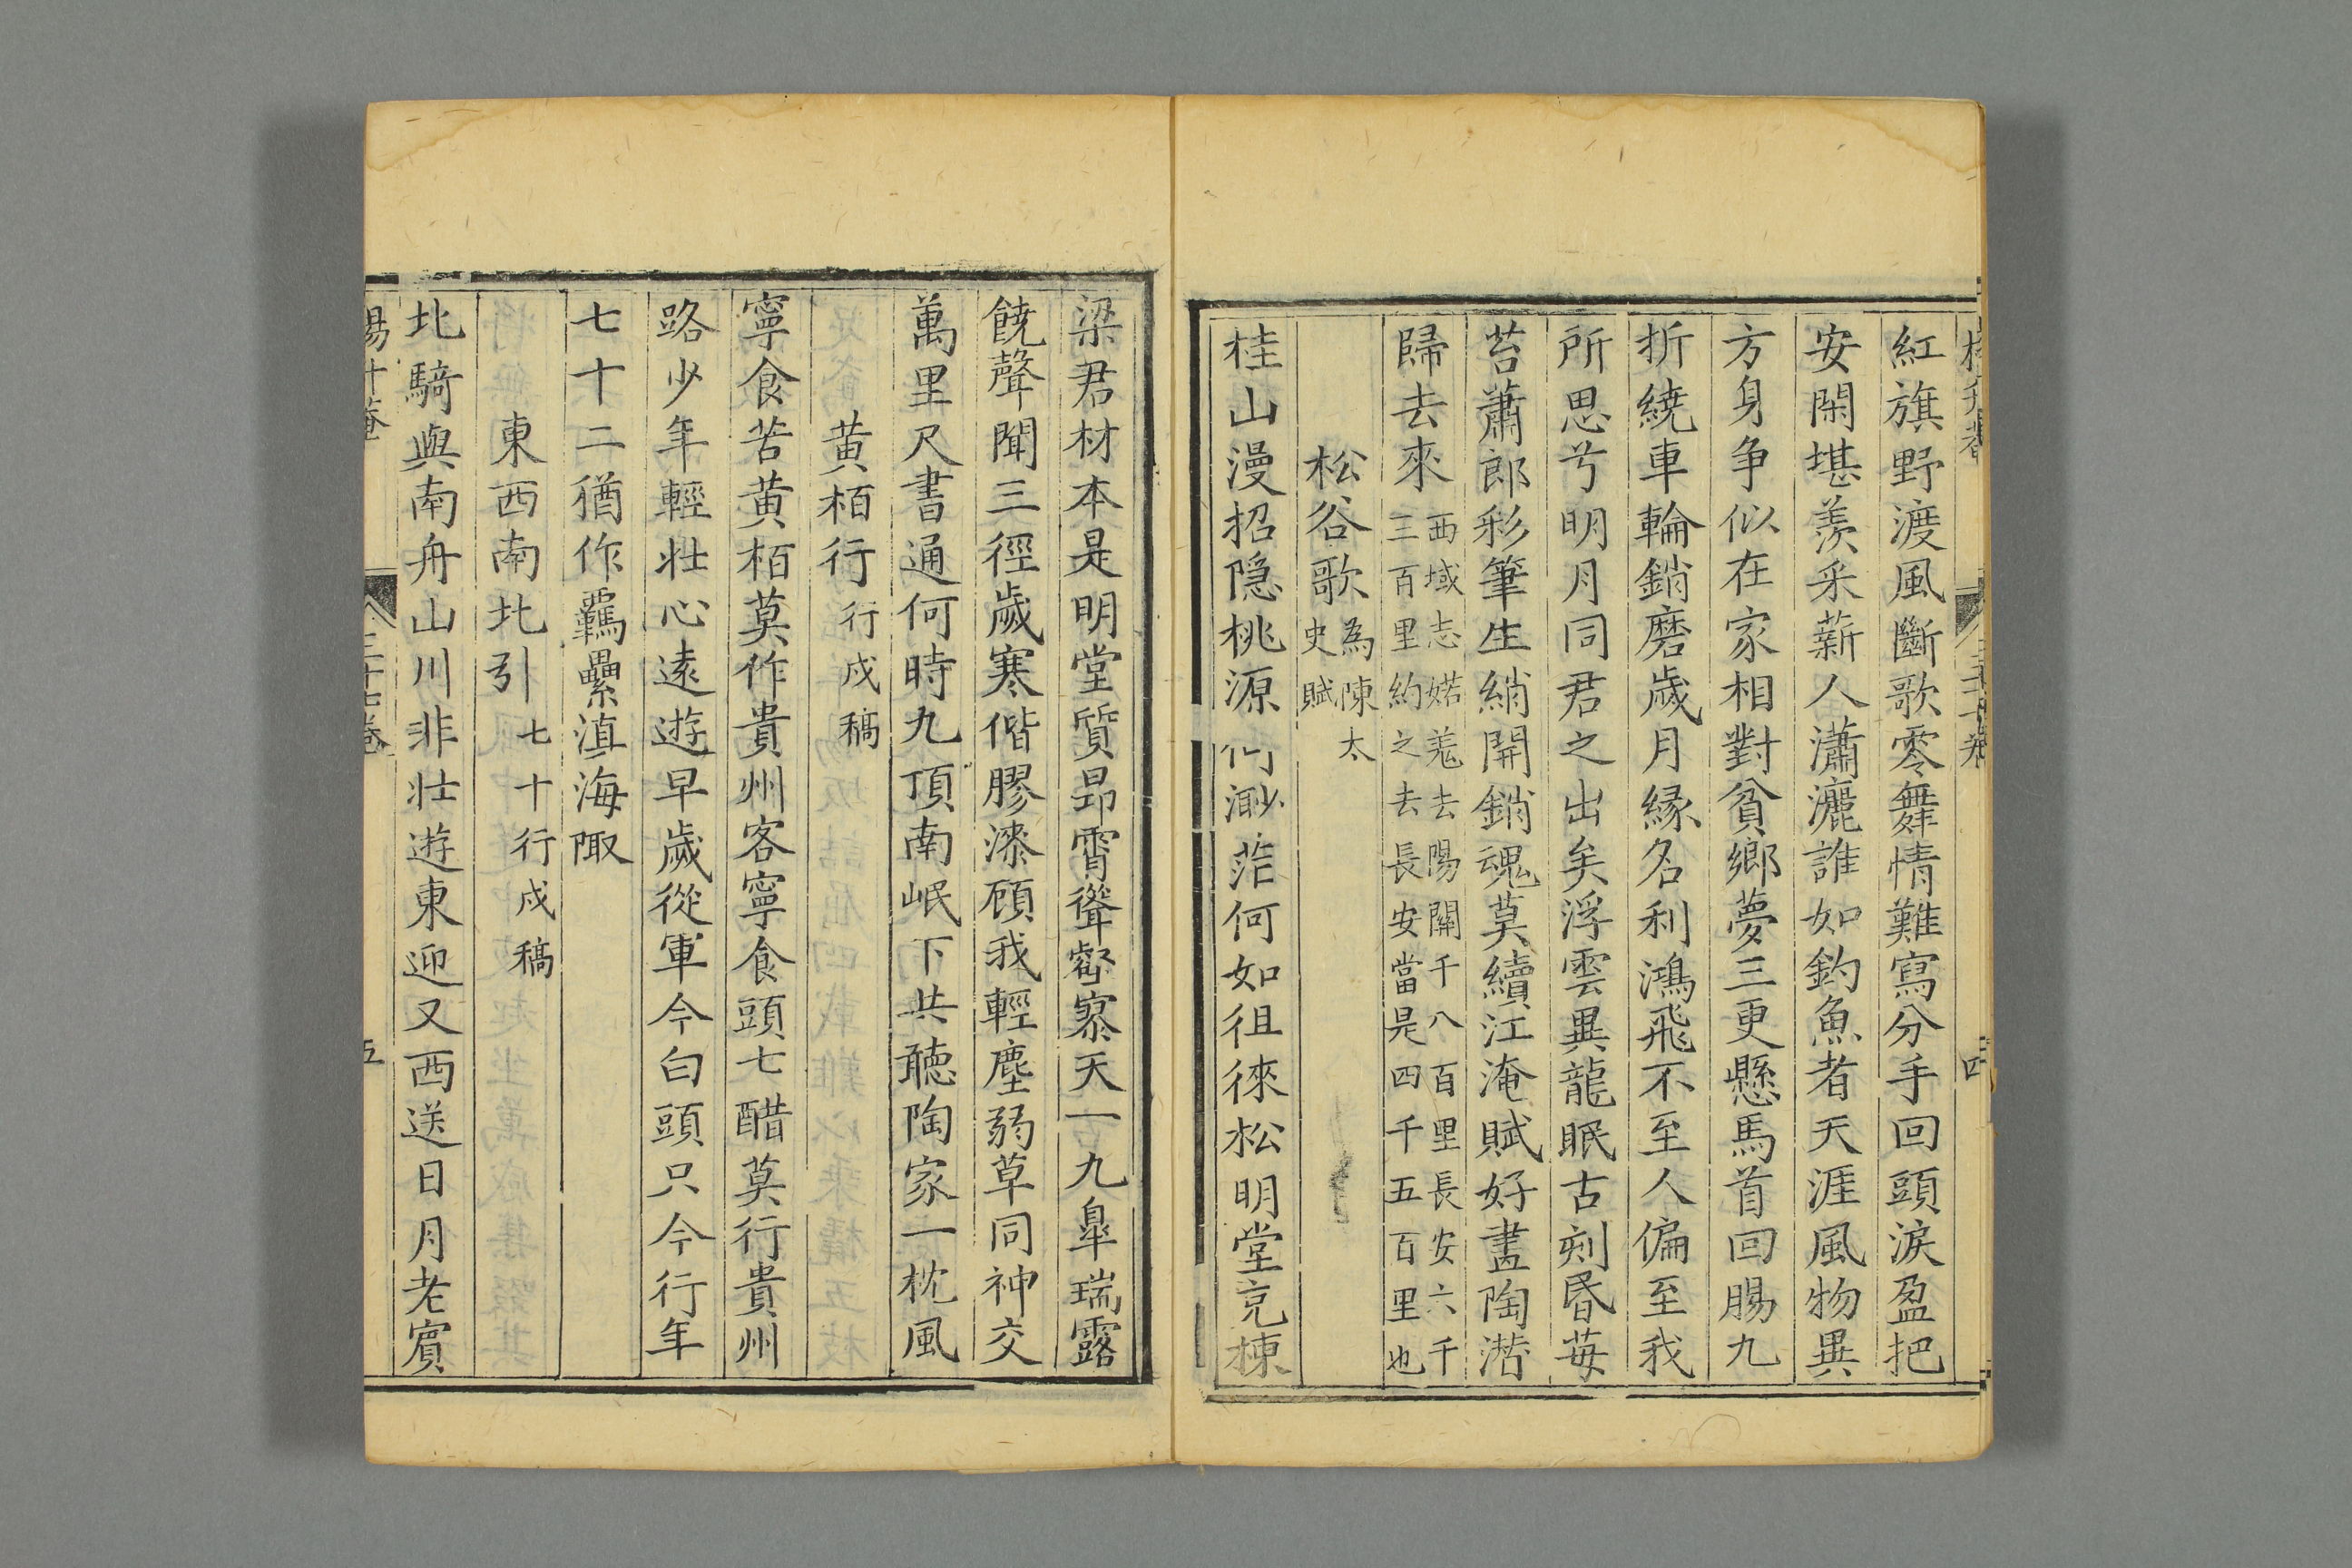 紅旗野渡風斷歌零舞情難寫分手回頭淚盈把
安閑堪羨采薪人瀟灑誰如釣魚者天涯風物異
方身争似在家相對貧鄉夢三更懸馬首回腸九
折繞車輪銷磨歲月緣名利鴻飛不至人偏至我
所思兮明月同君之出矣浮雲異龍眠古刻昏苺
苔蕭郎彩筆生綃開銷魂莫續江淹賦好畵陶潜
歸去來西域志婼羌去陽關千八百里長安六千
三百里約之去長安當是四千五百里也
松谷歌為陳太
史賦
桂山漫招隐桃源何渺茫何如徂徠松明堂充棟
梁君材本是明堂質昻霄聳壑寡天一九臯瑞露
饒聲聞三徑歲寒偕膠漆顧我輕塵弱草同神交
萬里尺書通何時九頂南岷下共聽陶家一枕風
黄栢行行戍稿
寧食苦黄栢莫作貴州客寧食頭七醋莫行貴州
路少年輕壯心遠遊早歲從軍今白頭只今行年
七十二猶作羈纍滇海陬
東西南北引七十行戍稿
北騎與南舟山川非壯遊東迎又西送日月老賓
三十七卷
五
四